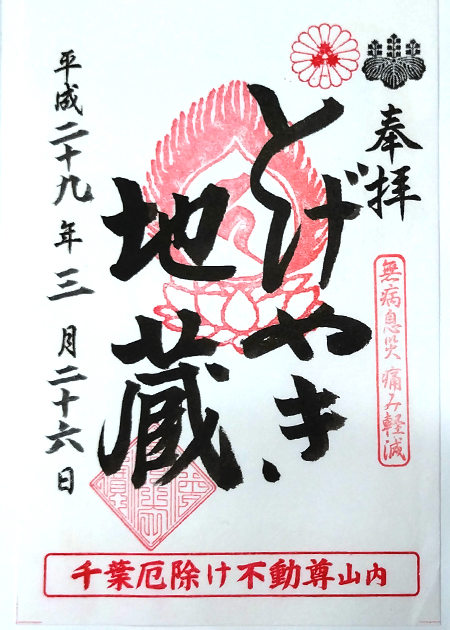 奉拝
無病息災 痛み軽減
とげやき
地蔵
平成二十九年三月二十六日
千葉厄除け不動尊山内